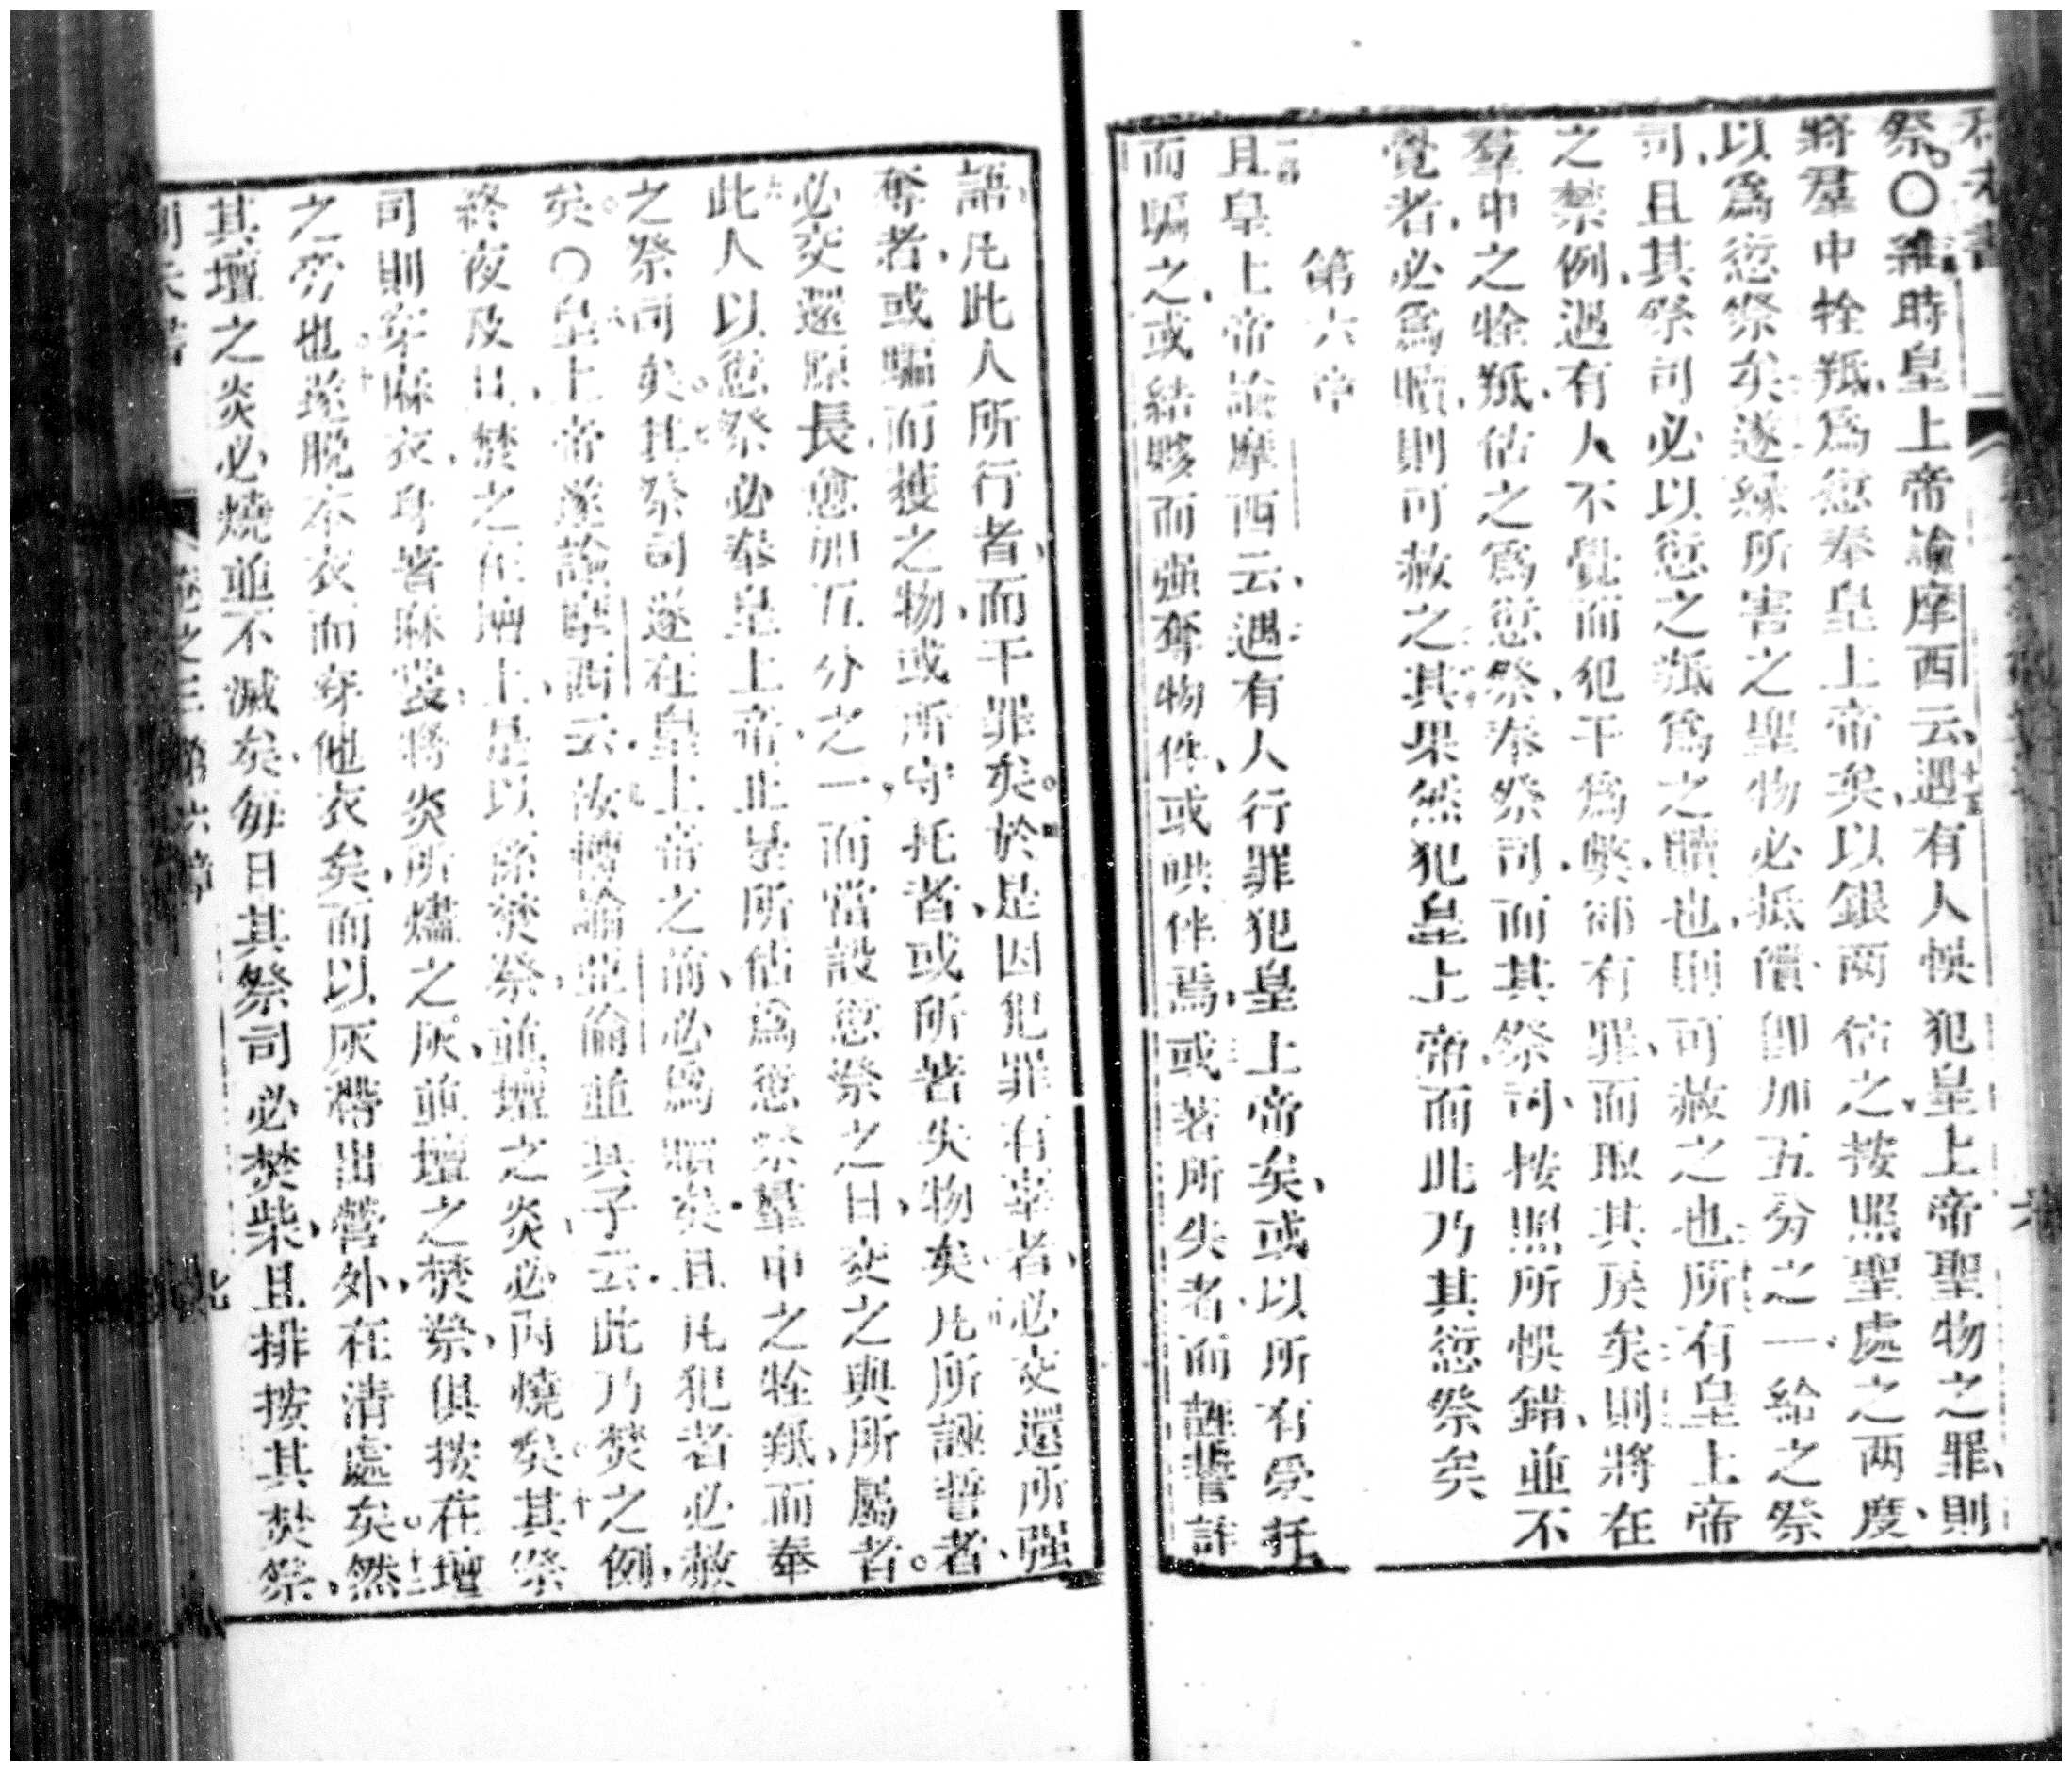 祭。〇維時皇上帝諭摩西云、遇有人悞犯皇上帝聖物之罪、則
將羣中牷羝、爲愆奉皇上帝矣、以銀兩估之、按照聖處之兩度、
以爲愆祭矣、遂緣所害之聖物必抵償、卽加五分之一、給之祭
司、且其祭司必以愆之羝爲之贖也、則可赦之也、所有皇上帝
之禁例、遇有人不覺而犯干爲獘、卻有罪、而取其戾矣、則將在
羣中之牷羝、估之爲愆祭、奉祭司、而其祭司、按照所悞錯、並不
覺者、必爲贖、則可赦之、其果然犯皇上帝而此乃其愆祭矣
第六章
且皇上帝諭摩西云、遇有人行罪犯皇上帝矣、或以所有受托、
而騙之、或結夥而强奪物件、或哄伴焉、或著所失者、而誑誓詐
語、凡此人所行者、而干罪矣。於是因犯罪有辜者、必交還所强
奪者、或騙而獲之物、或所守托者、或所著失物矣、凡所誣誓者、
必交還原長、愈加五分之一、而當設愆祭之日、交之與所屬者。
此人以愆祭、必奉皇上帝、止是所估爲愆祭羣中之牷羝、而奉
之祭司矣。其祭司遂在皇上帝之前、必爲贖矣、且凡犯者必赦
矣。〇皇上帝遂諭摩西云、汝轉諭亞倫並其子云、此乃焚之例、
終夜及旦、焚之在壇上、是以爲焚祭、並壇之炎必內燒矣、其祭
司則穿麻衣、身著麻裳、將炎所燼之灰、並壇之焚祭、俱按在壇
之旁也、遂脫本衣、而穿他衣矣、而以灰帶出營外、在清處矣、然
其壇之炎必燒並不滅矣、每日其祭司必焚柴、且排按其焚祭、
之三第六章